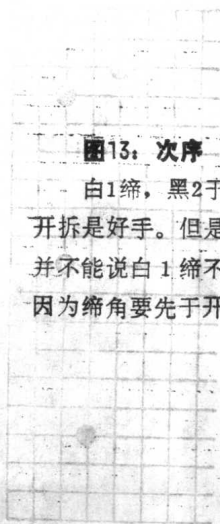 图13：次序
白1缔，黑2于
开拆是好手。但是
并不能说白1缔不
因为缔角要先于开